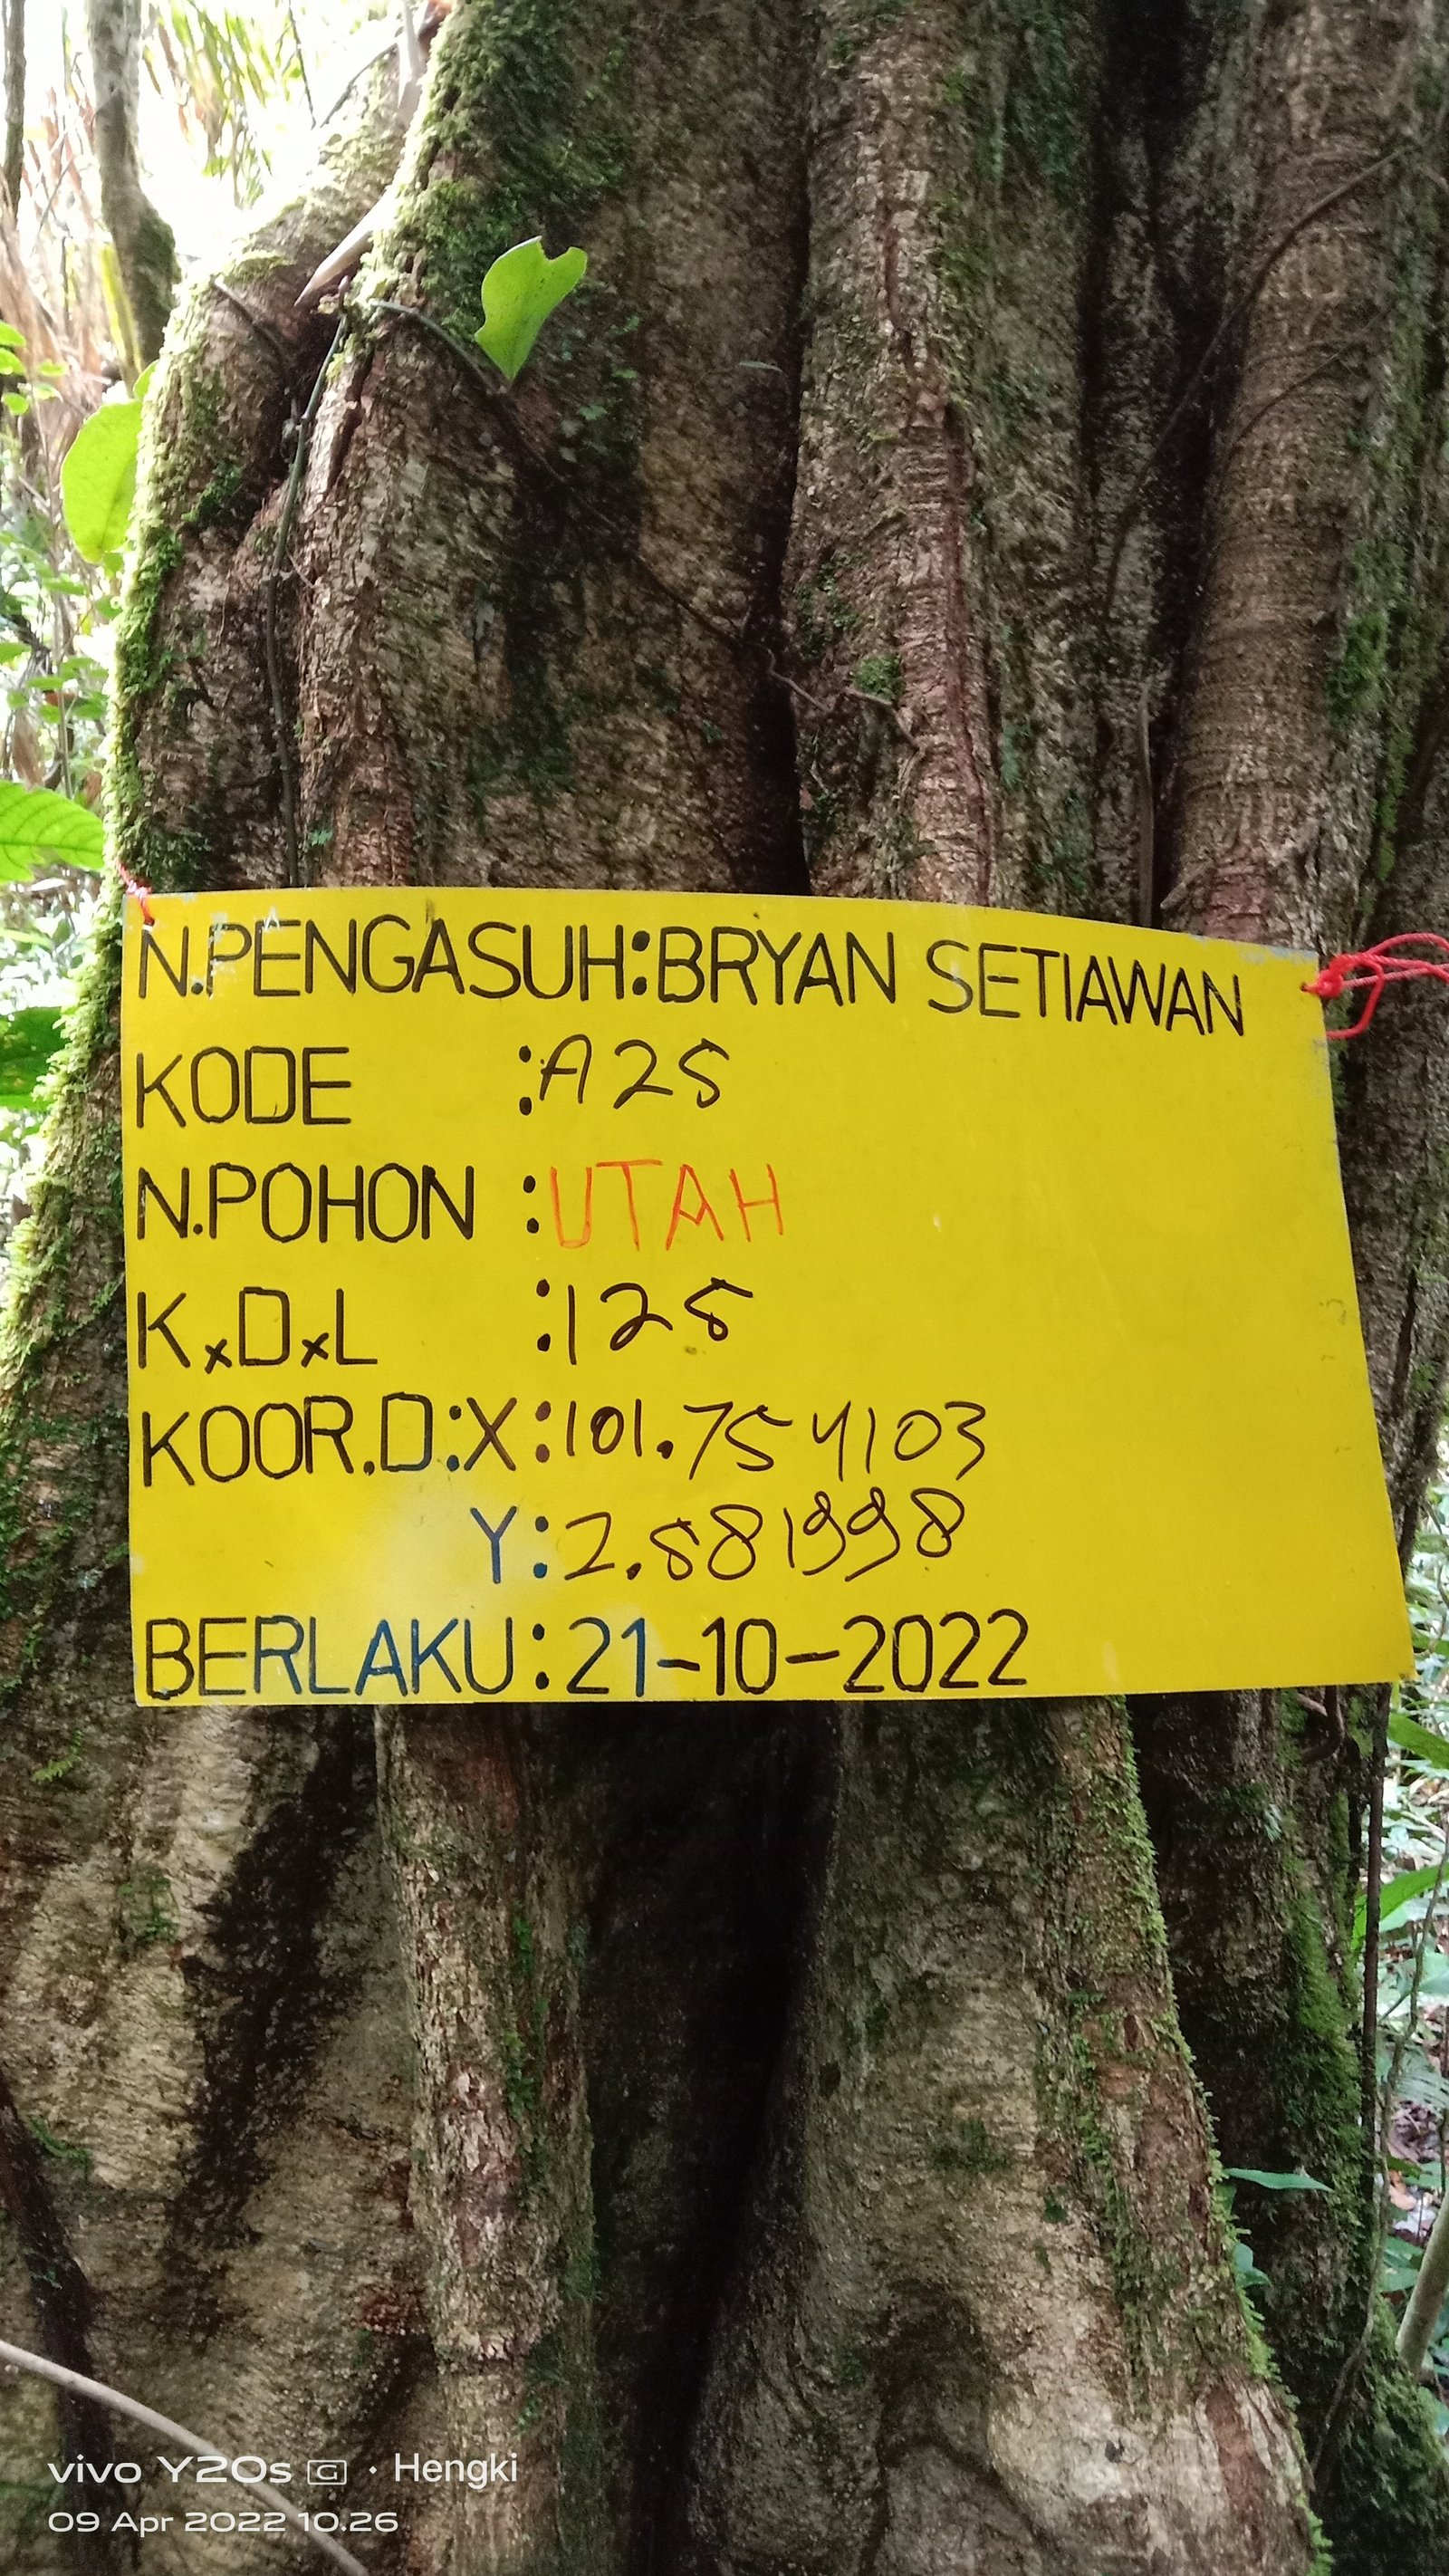 N.PENGASUH:BRYAN SETIAWAN
KODE :A25
N.POHON :UTAH
KxDxL :125
KOOR.D:X:101.754103
Y:2.581998
BERLAKU:21-10-2022
vivo Y20s G · Hengki
09 Apr 2022 10.26